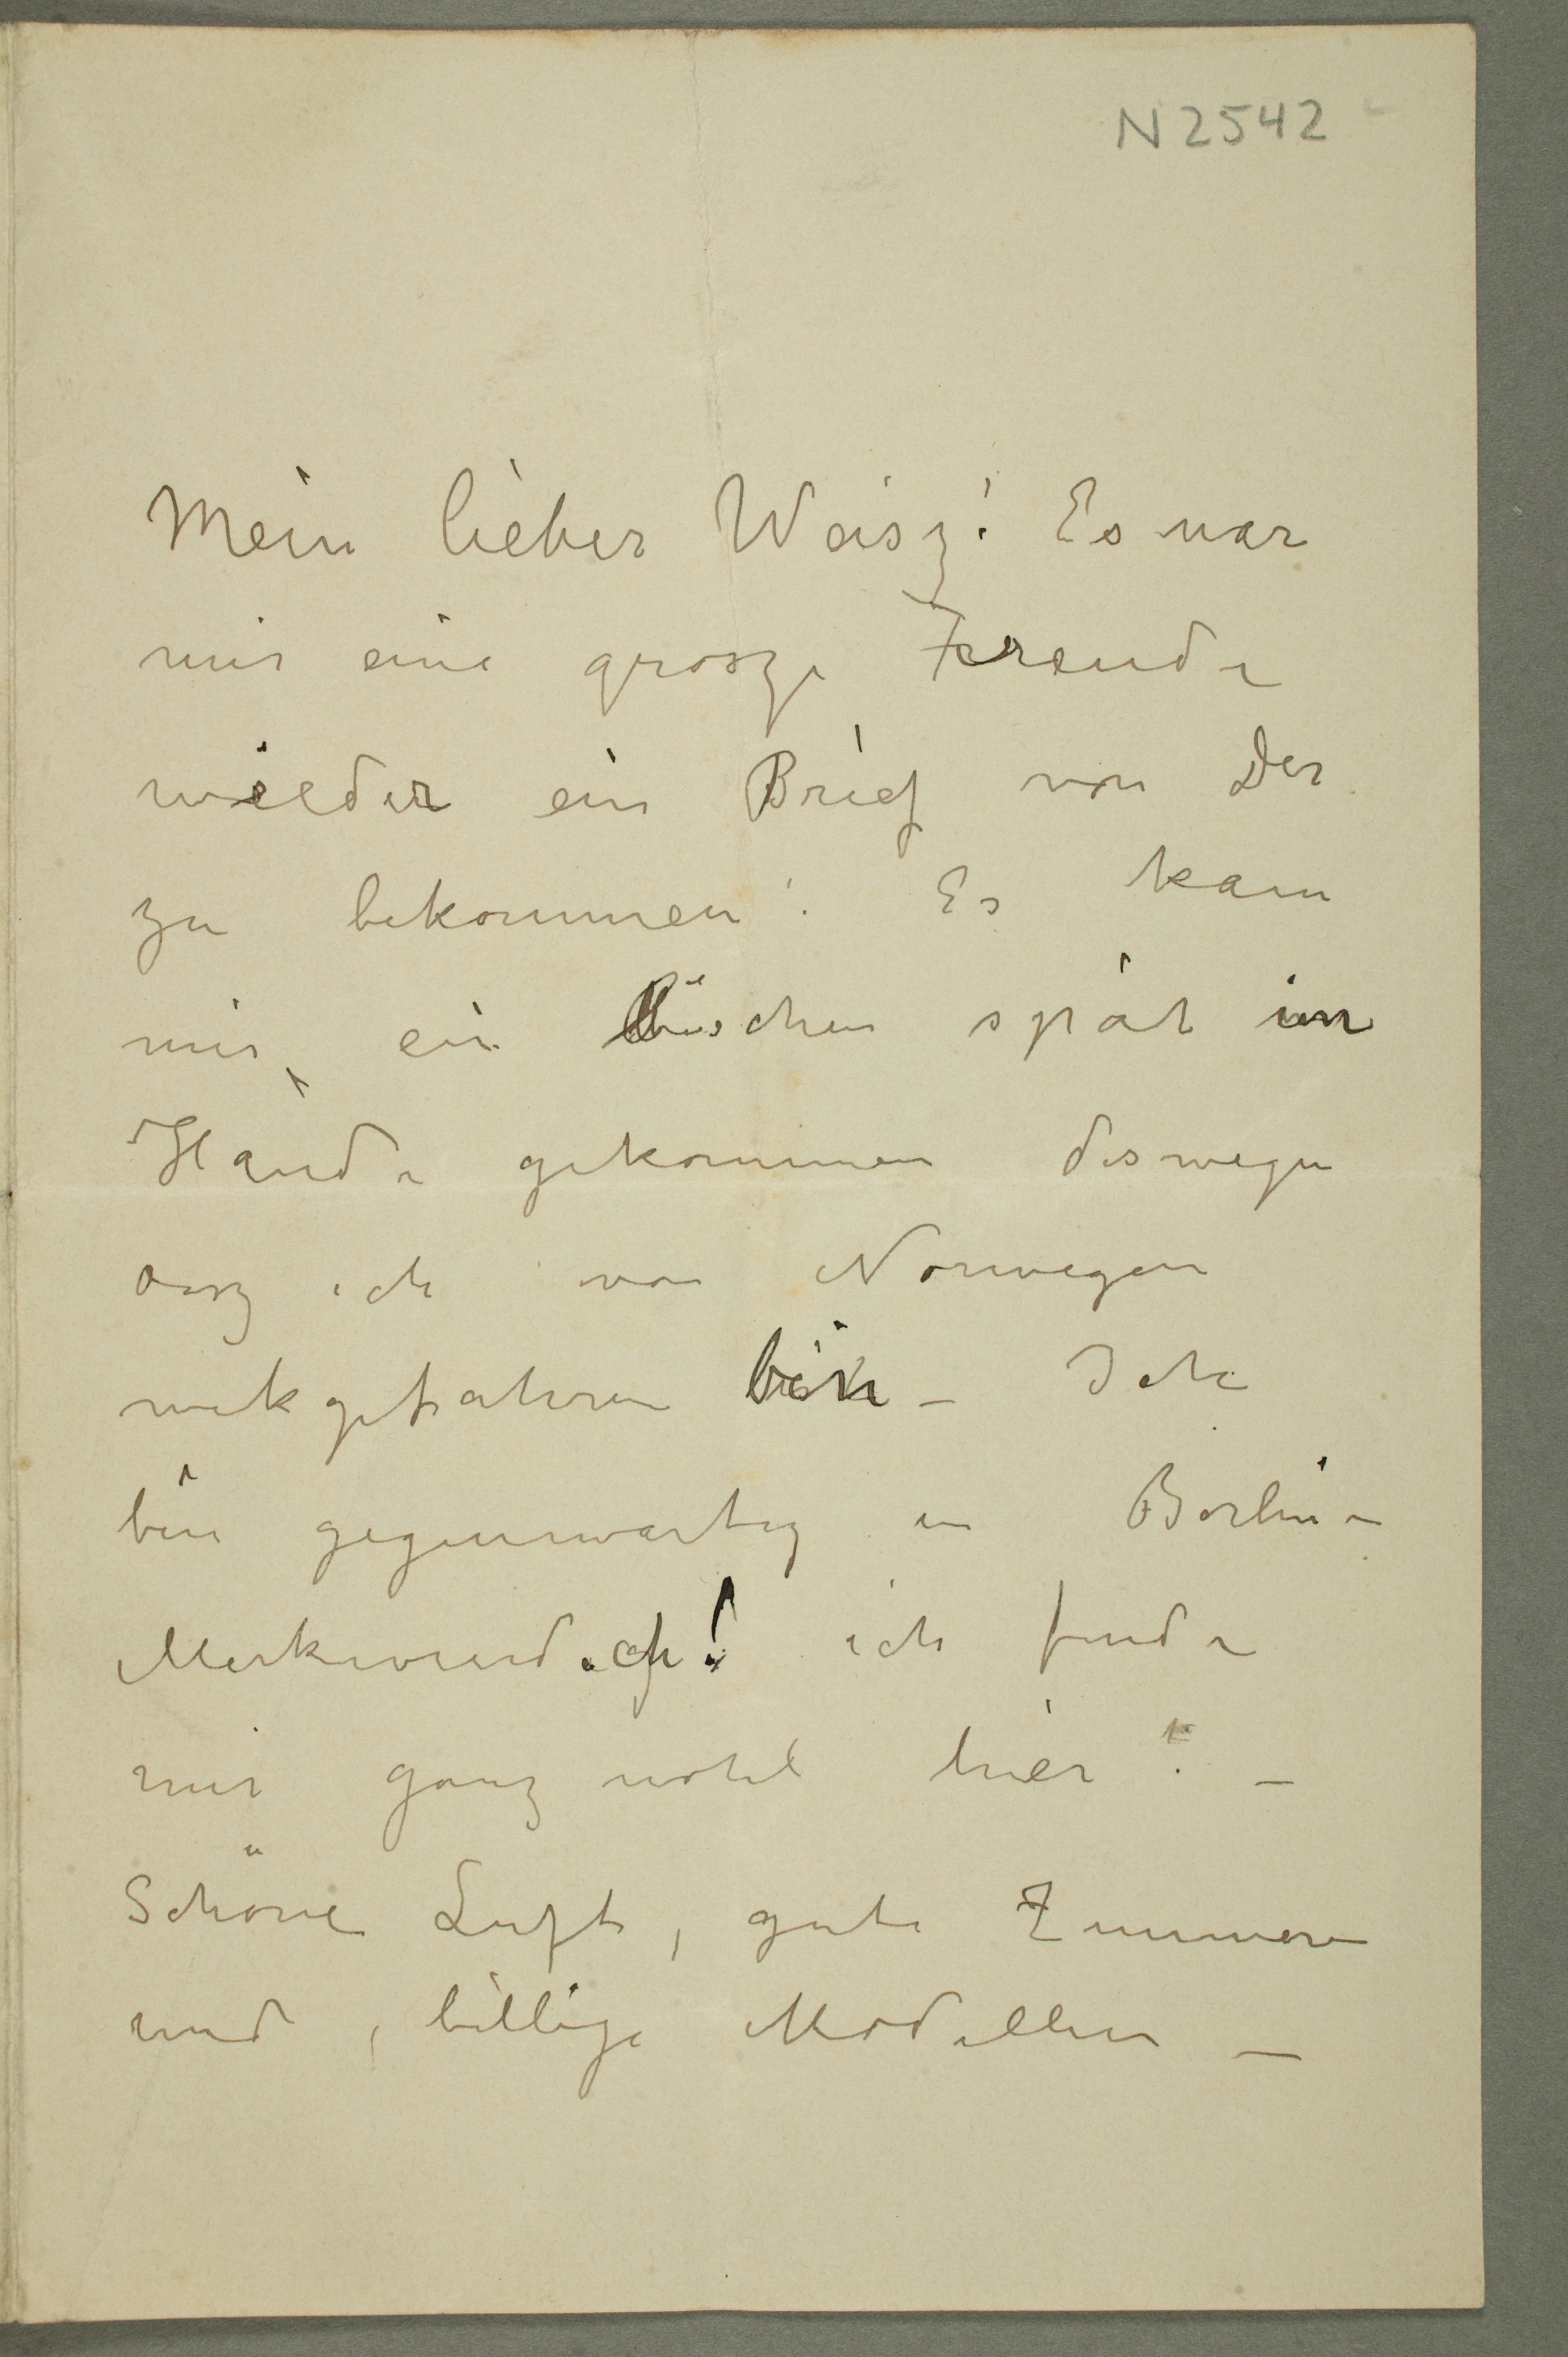 N 2542
Mein lieber Weisz! Es war
mir eine grosze Freude
wieder ein Brief von Der
zu bekommen! Es kam
mir ein bischen spät in
Hände gekommen deswegen
dasz ich von Norwegen
wekgefahren bin – Ich
bin gegenwartig in Berlin –
Merkwurdich! ich finde
mir ganz wohl hier! –
Schöne Luft, gute Zimmern
und, billige Modellen –